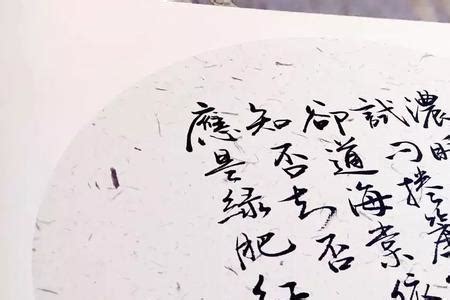 濃
試問捲簾
卻道海棠依
知否知否
應是綠肥